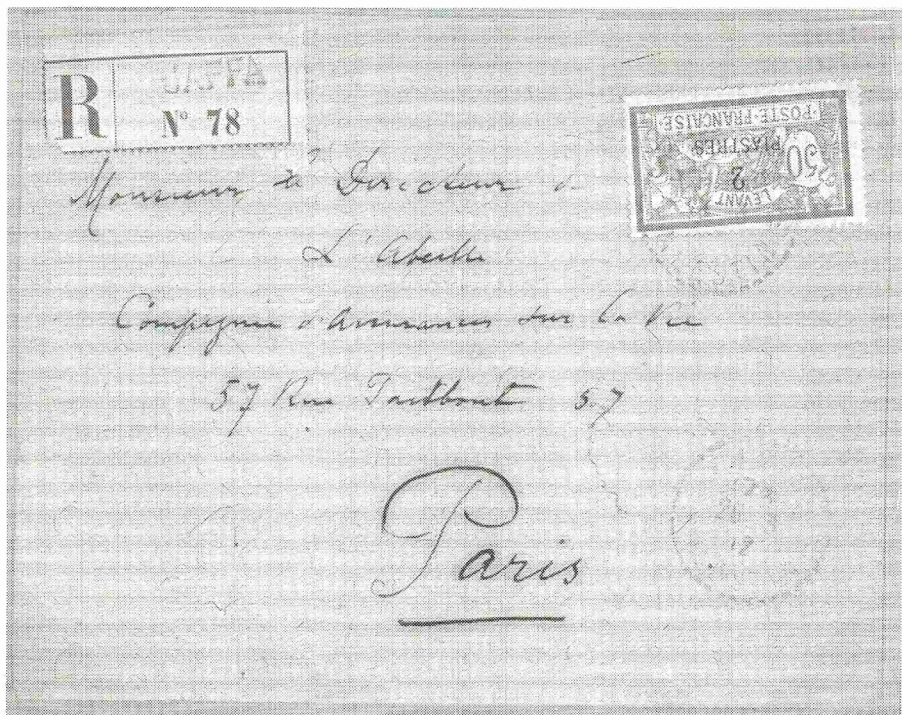 R JAFFA
N° 78
POSTE FRANÇAISE
50
PIASTRES
2
LEVANT
Monsieur le Directeur de
L'Abeille
Compagnie d'Assurances sur la Vie
57 Rue Taitbout 57
Paris